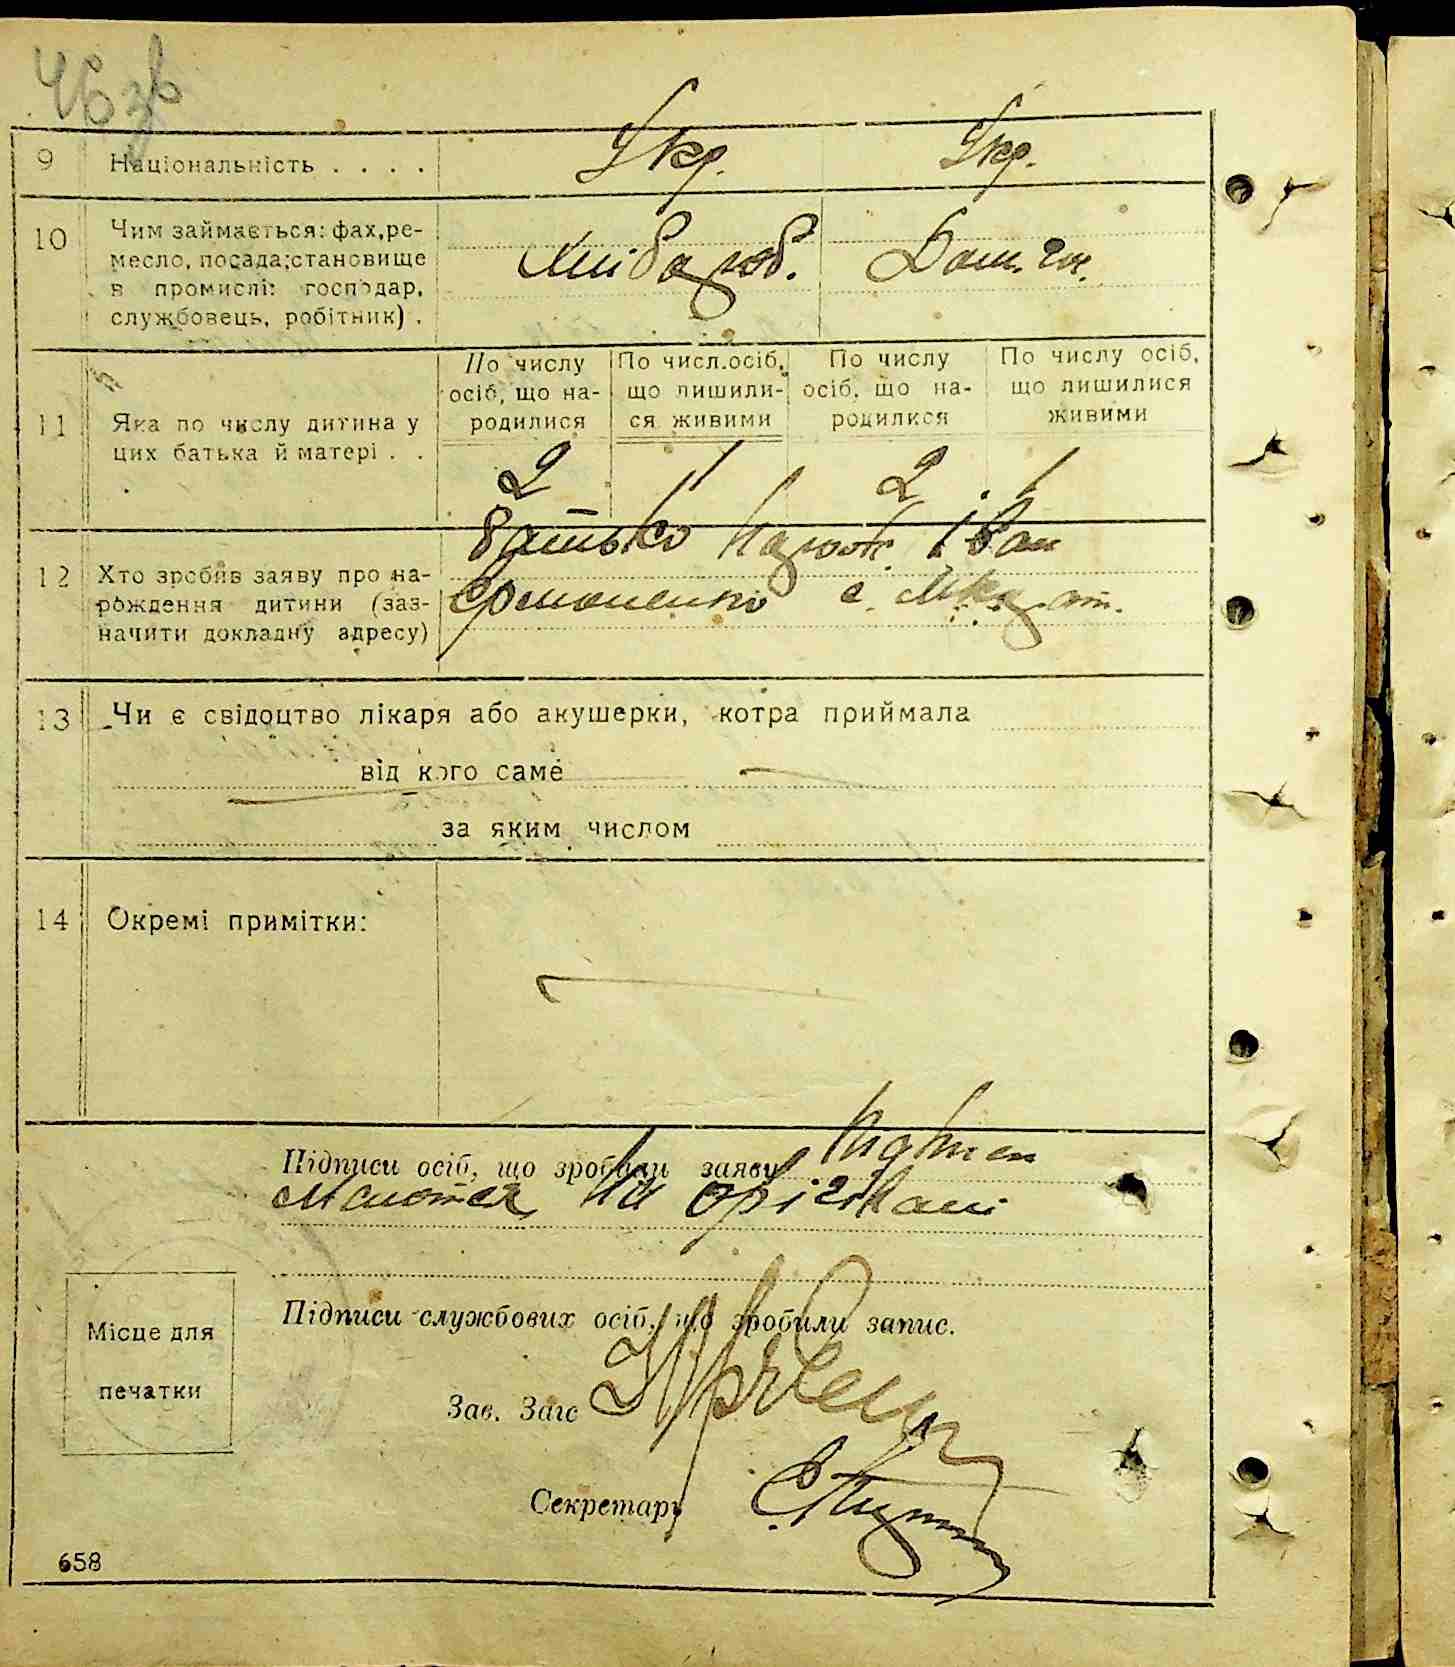 46 зв
9 Національність . . . . Укр. Укр.
10 Чим займається: фах, ре-
месло, посада; становище
в промислі: господар,
службовець, робітник) .
Хлібороб. Дом. гос.
11 Яка по числу дитина у
цих батька й матері . .
По числу
осіб, що на-
родилися
По числ. осіб,
що лишили-
ся живими
По числу
осіб, що на-
родилися
По числу осіб,
що лишилися
живими
2 1 2 1
12 Хто зробив заяву про на-
рождення дитини (заз-
начити докладну адресу)
батько Іван
с.
13 Чи є свідоцтво лікаря або акушерки, котра приймала
від кого саме
за яким числом
14 Окремі примітки:
Підписи осіб, що зробили заяву Підпис
на оригіналі
Підписи службових осіб, що зробили запис.
Місце для
печатки
Зав. Загс
Секретарь
658